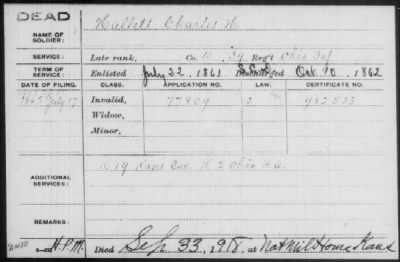 DEAD
NAME OF SOLDIER: Hullett, Charles H
SERVICE: Late rank, Co. B, 29 Reg't Ohio Inf
TERM OF SERVICE: Enlisted July 22, 1861 Discharged Oct. 10, 1862
DATE OF FILING. CLASS. APPLICATION NO. LAW. CERTIFICATE NO.
1865 July 17 Invalid, 77809 982833
Widow,
Minor,
ADDITIONAL SERVICES: K 19 Kans Cav. K 2 Ohio H.A.
REMARKS:
H.P.M. Died Sep 23, 1918, at Nat Mil Home Kans